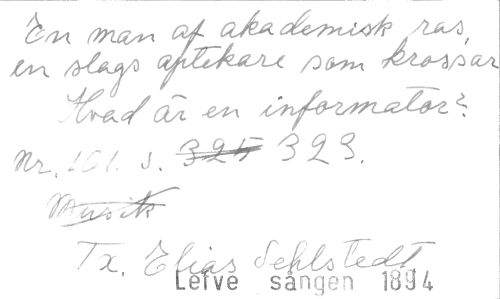 En man af akademisk ras,
en slags aptekare som krossar
Hvad är en informator?
Nr. 101. s. 325 323.
Musik
Tx. Elias Sehlstedt
Lefve sången 1894